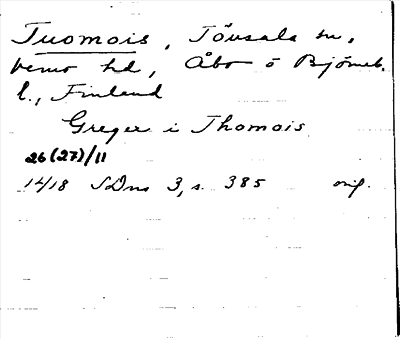 Tuomois, Tövsala sn,
Vemo hd, Åbo o Björneb.
l., Finland
Greger i Thomois
26(27)/11
1418 SDns 3, s. 385 orig.